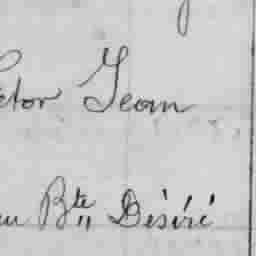 ctor Jean
Bte Désiré